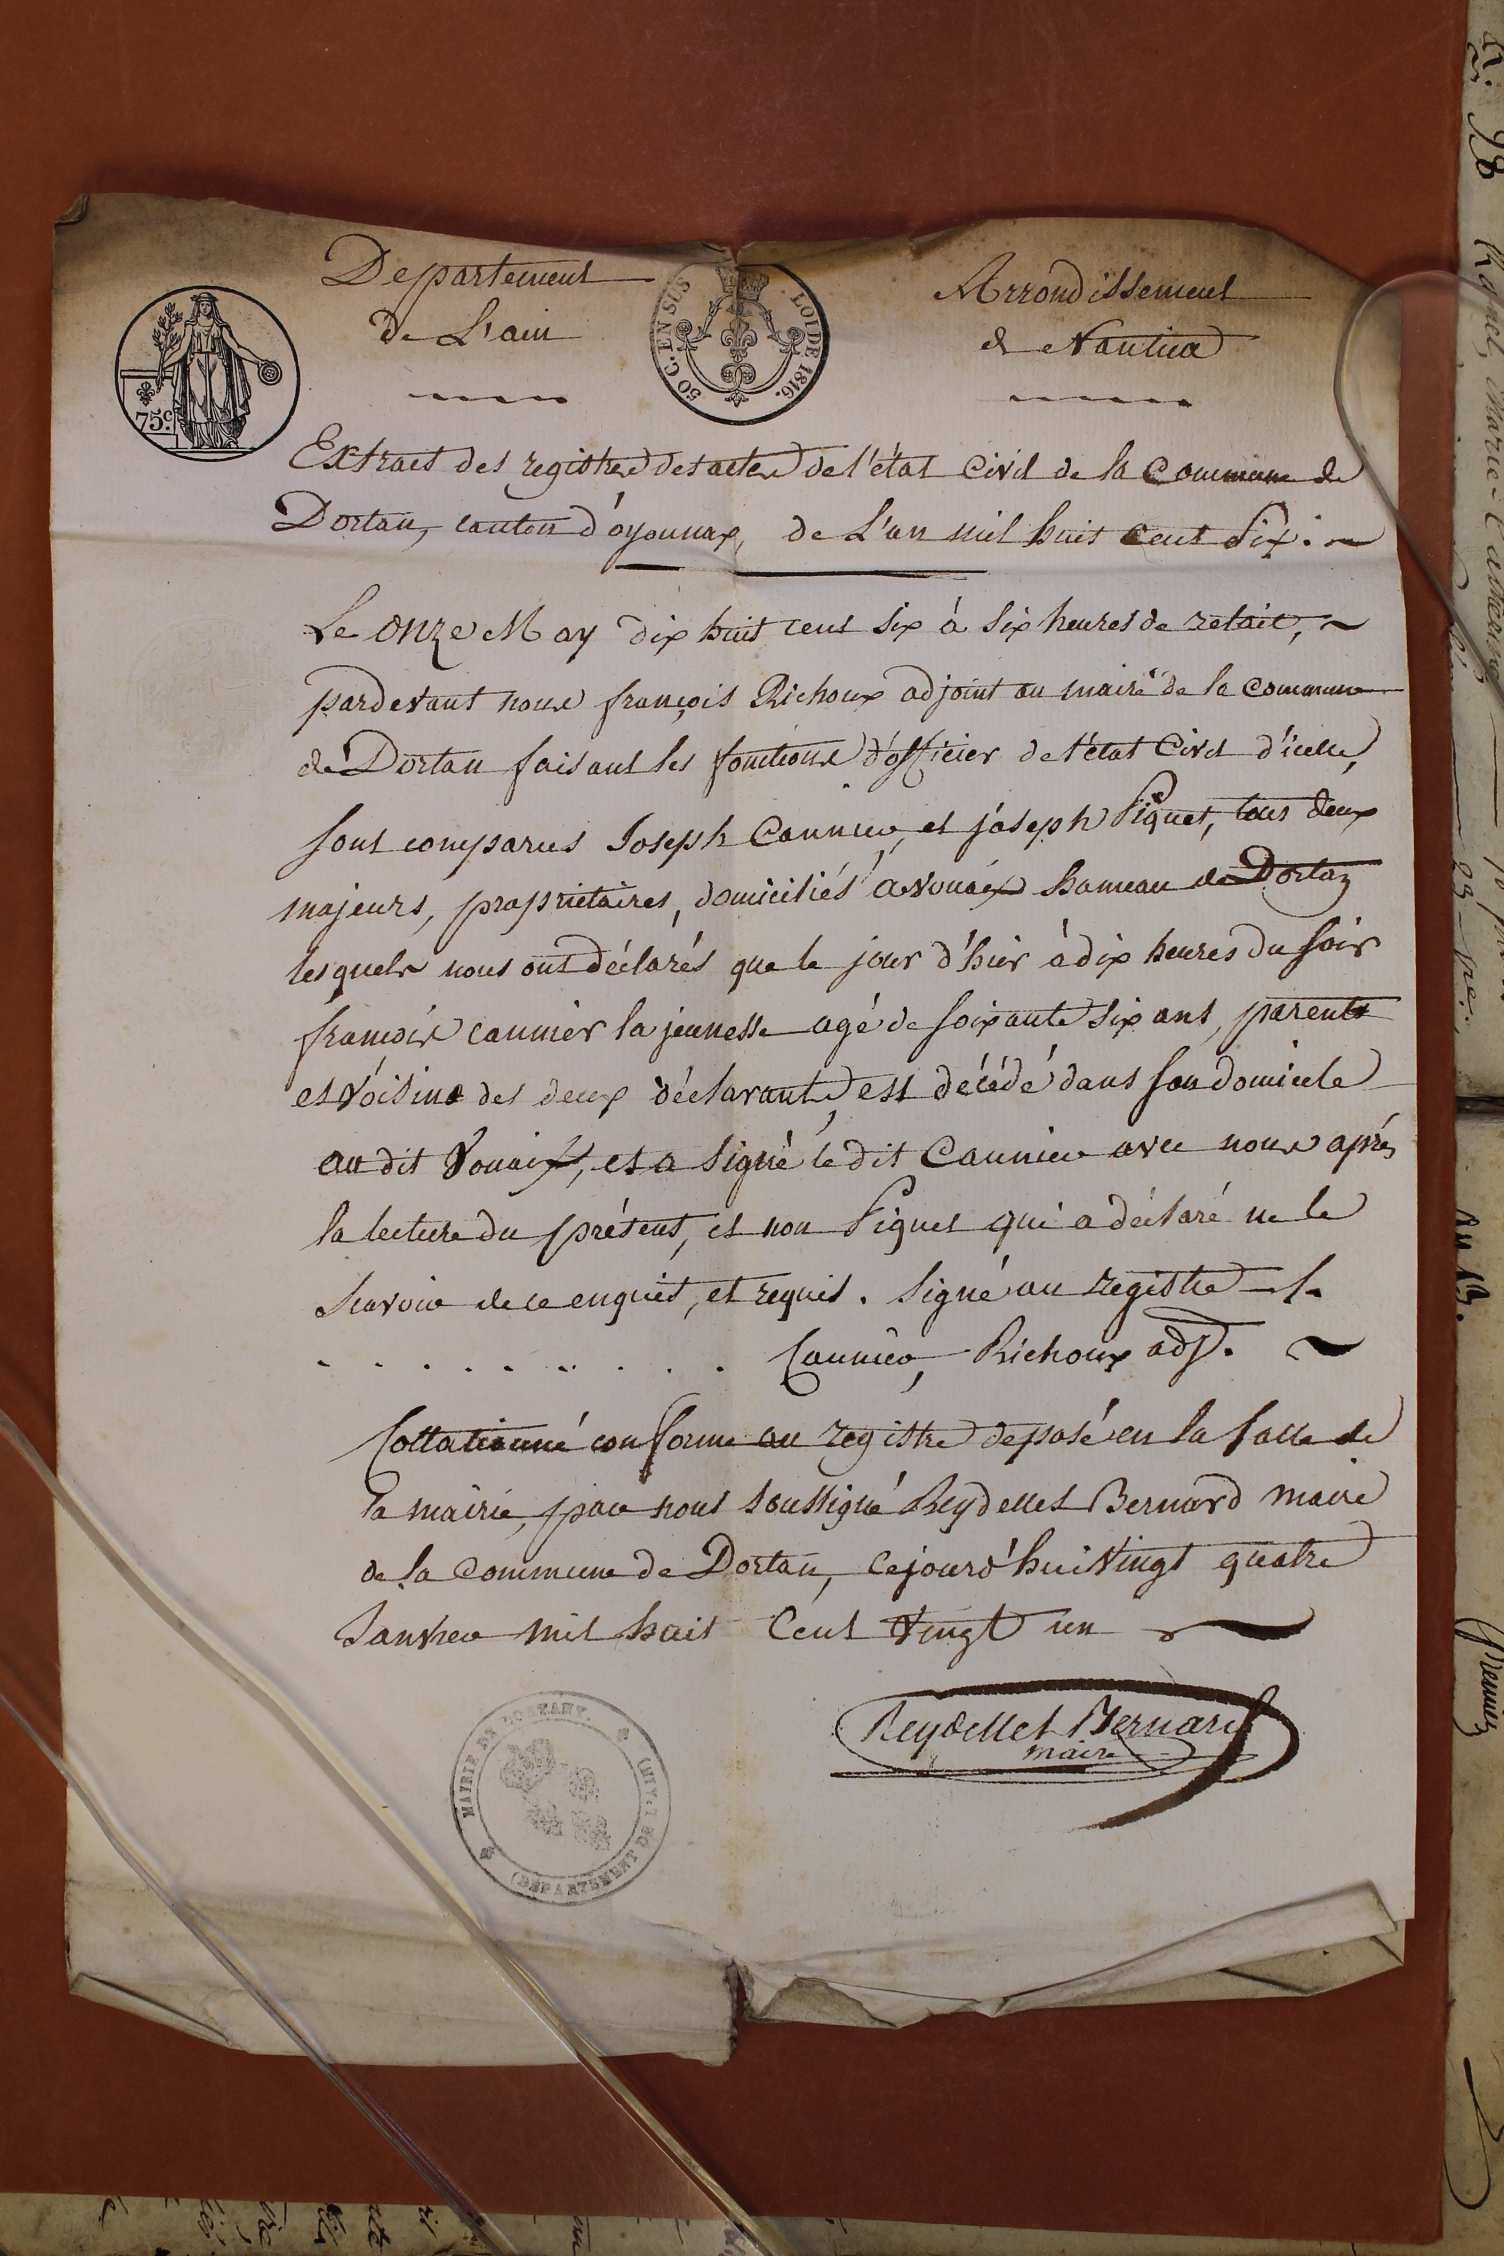 Departement
de L'ain
Arrondissement
de Nantua
75 c.
50 C. EN SUS
LOI DE 1816.
Extrait des registres des actes de l'état Civil de la Commune de
Dortan, canton d'oyonnax, de L'an mil huit cent six. ~
Le onze May dix huit cent six à six heures de relait, ~
pardevant nous françois Richoux adjoint au maire de la commune
de Dortan faisant les fonctions d'officier de l'état Civil d'icelle,
sont comparus Joseph Cannier, et joseph Piquet, tous deux
majeurs, propriétaires, domiciliés à vouaix hameau de Dortan
lesquels nous ont déclarés que le jour d'hier à dix heures du soir
françois cannier la jeunesse agé de soixante six ans, parents
et voisins des deux déclarants, est décédé dans son domicile
au dit Vouaix, et a signé le dit Cannier avec nous après
la lecture du présent, et non Piquet qui a déclaré ne le
scavoir de ce enquis, et requis. signé au registre
. . . . . . . . . . Cannier, Richoux adj. ~
Collationné conforme au registre deposé en la salle de
la mairie, par nous soussigné Reydellet Bernard maire
de la commune de Dortan, cejourd'hui vingt quatre
Janvier mil huit cent vingt un
Reydellet Bernard
maire
MAIRIE DE DORTANT.
(DÉPARTEMENT DE L'AIN)